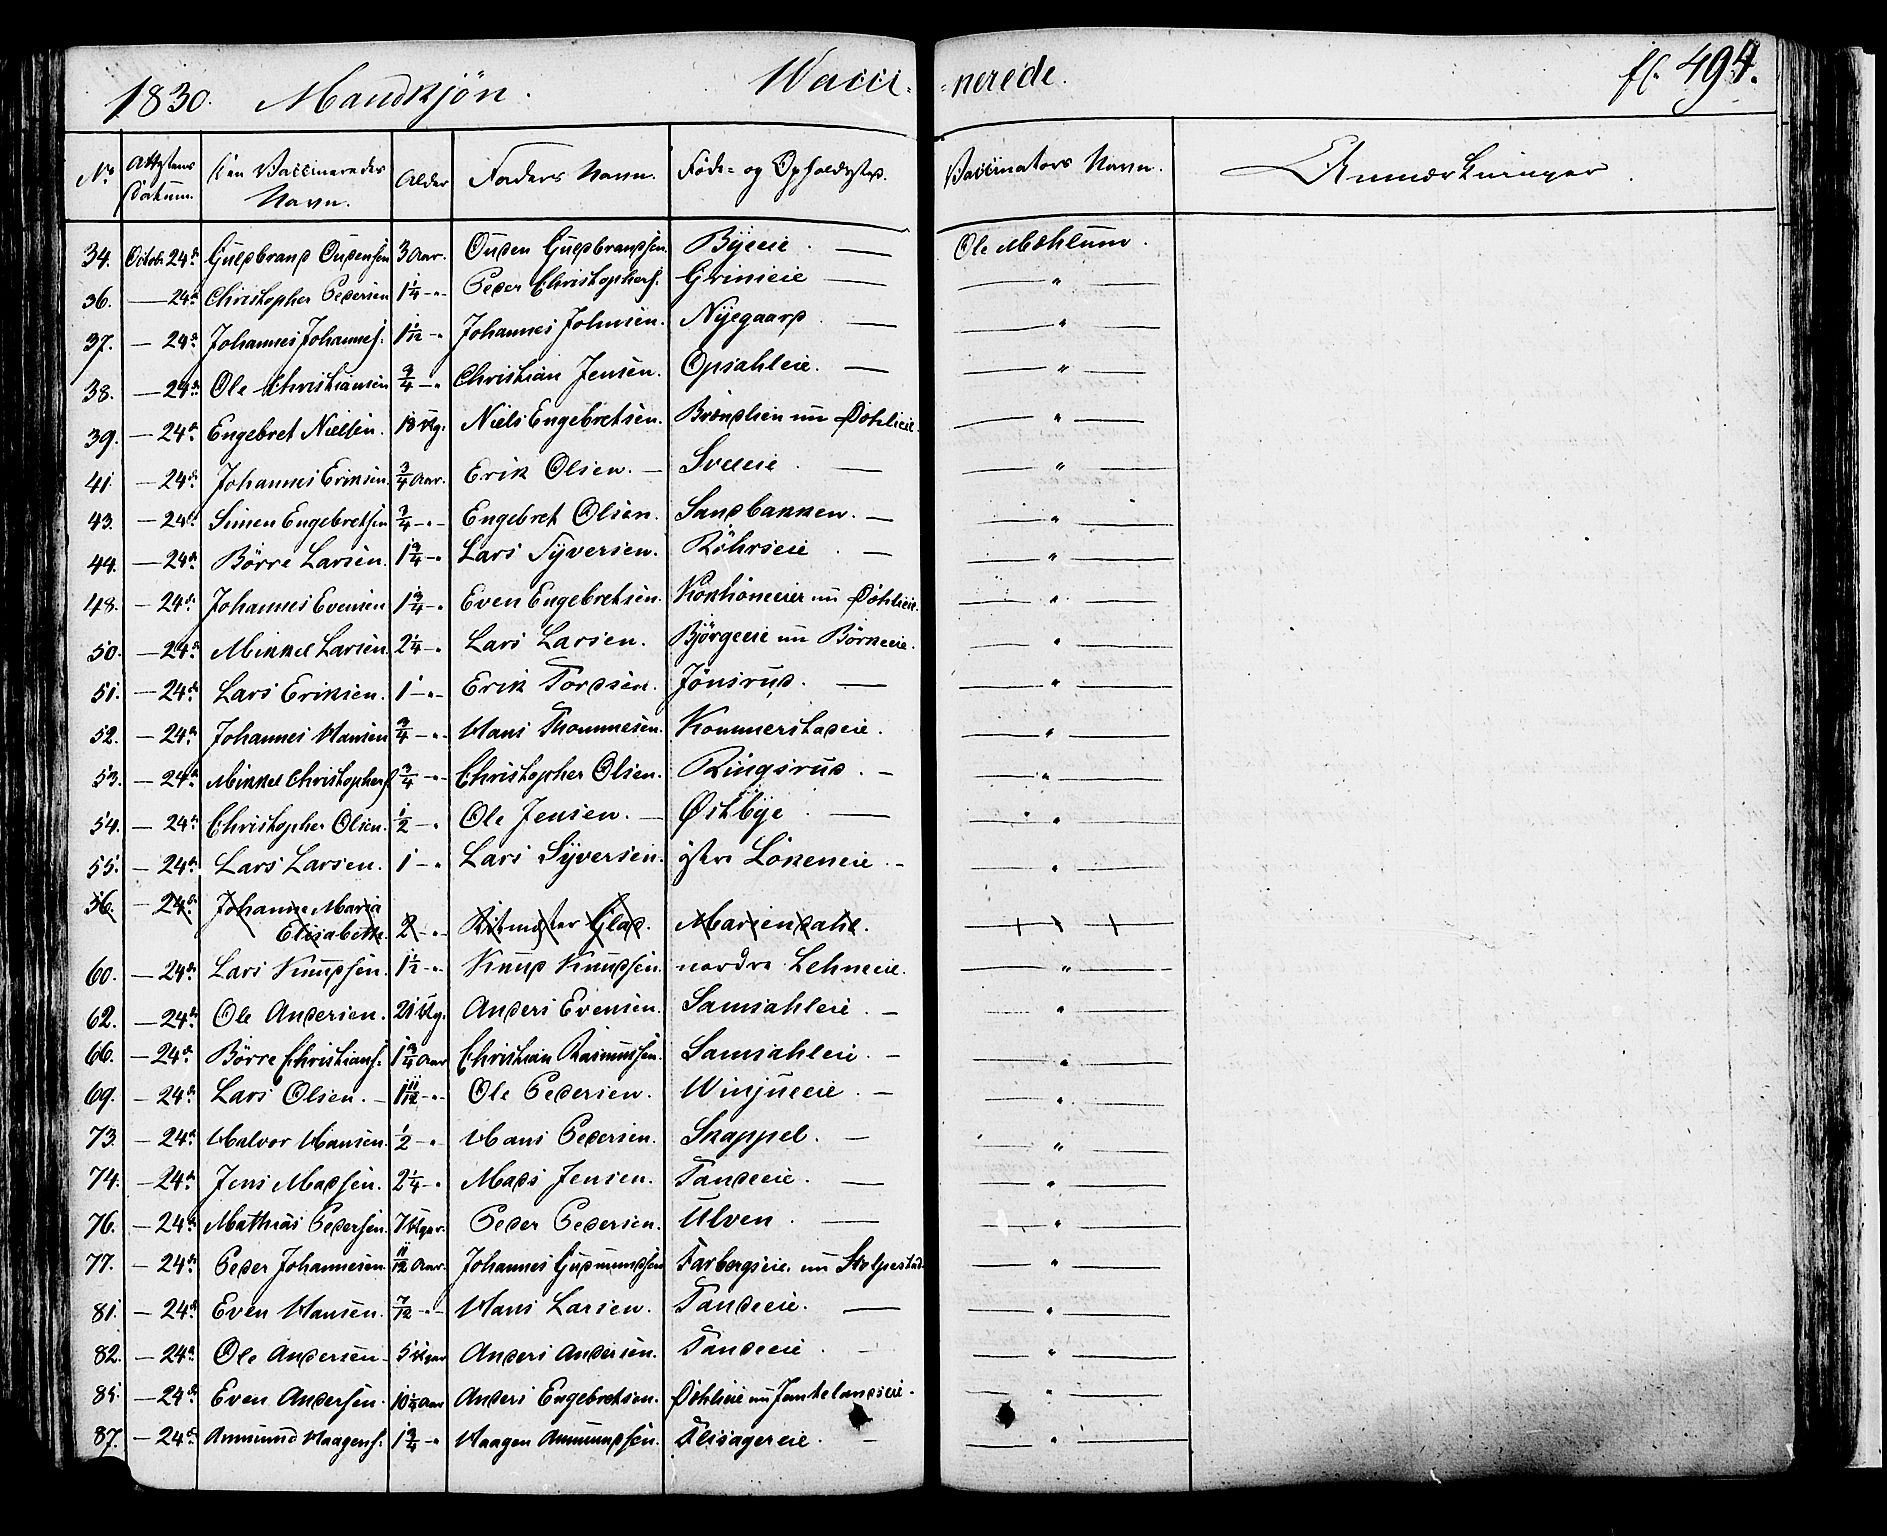 1830. Mandkjön. Vacci- -nerede. fl. 494.
No Attestens Datum. Den Vaccineredes Navn. Alder Faders Navn. Føde- og Opholdssted. Vaccinators Navn. Anmærkninger.
34. Octob. 24de Gulbrand Oudensen 3 Aar. Ouden Gulbrandsen Byeeie. — Ole Mæhlum.
36. — 24de Christopher Pedersen 1 1/4 -"- Peder Christophers. Grimeie — — " —
37. — 24de Johannes Johannes. 1 1/12 -"- Johannes Johnsen. Nyegaard. — — " —
38. — 24de Ole Christiansen 3/4 -"- Christian Jensen. Opsahleie. — — " —
39. — 24de Engebret Nielsen. 13 Ug. Niels Engebretsen. Brændlien nu Döhlieie. — " —
41. — 24de Johannes Eriksen. 3/4 Aar. Erik Olsen. — Sveeeie. — — " —
43. — 24de Simen Engebretsen 3/4 -"- Engebret Olsen. Sandbakken. — — " —
44. — 24de Börre Larsen. 1 3/4 -"- Lars Syversen. Röhrseie — — " —
48. — 24de Johannes Evensen 1 3/4 -"- Even Engebretsen. nu Döhlieie. — " —
50. — 24de Mikkel Larsen. 2 1/4 -"- Lars Larsen. Bjørgeeie nu Börkeeie. — " —
51. — 24de Lars Eriksen. 1 -"- Erik Tordsen. Jönsrud. — — " —
52. — 24de Johannes Hansen 3/4 -"- Hans Thommesen. Kommerstadeie. — " —
53. — 24de Mikkel Christophers. 3/4 -"- Christopher Olsen. Ringsrud. — — " —
54. — 24de Christopher Olsen. 1/2 -"- Ole Jensen. — Østbye. — — " —
55. — 24de Lars Larsen. 1 -"- Lars Syversen. östre Lökeneie. — — " —
56. — 24de Johanne Maria
Elisabeth. 2 -"- Ritmester Glad. Mariendahl. — " —
60. — 24de Lars Knudsen. 1 1/2 -"- Knud Knudsen. nordre Lehneeie. — " —
62. — 24de Ole Andersen. 21 Ug. Anders Evensen. Samsahleie. — — " —
66. — 24de Börre Christians. 1 3/4 Aar Christian Rasmussen. Samsahleie. — — " —
69. — 24de Lars Olsen. — 1 11/12 -"- Ole Pedersen. Winjueeie. — — " —
73. — 24de Halvor Hansen. 1/2 -"- Hans Pedersen. Skappel. — — " —
74. — 24de Jens Madsen. 2 1/4 -"- Mads Jensen. Tandeeie. — — " —
76. — 24de Mathias Pedersen. 7 Uger. Peder Pedersen. Ulven. — — " —
77. — 24de Peder Johannesen. 11/12 Aar. Johannes Gudmundsen Farbergseie. nu Stolpestad — " —
81. — 24de Even Hansen. 7/12 -"- Hans Larsen. Tandeeie. — — " —
82. — 24de Ole Andersen. 5 Uger Anders Andersen. Tandeeie. — — " —
85. — 24de Even Andersen. 10 1/4 Aar Anders Engebretsen. Döhlieie nu Jemtelandseie. — " —
87. — 24de Ammund Haagens. 1 3/4 -"- Haagen Ammundsen. Flisagereie. — — " —